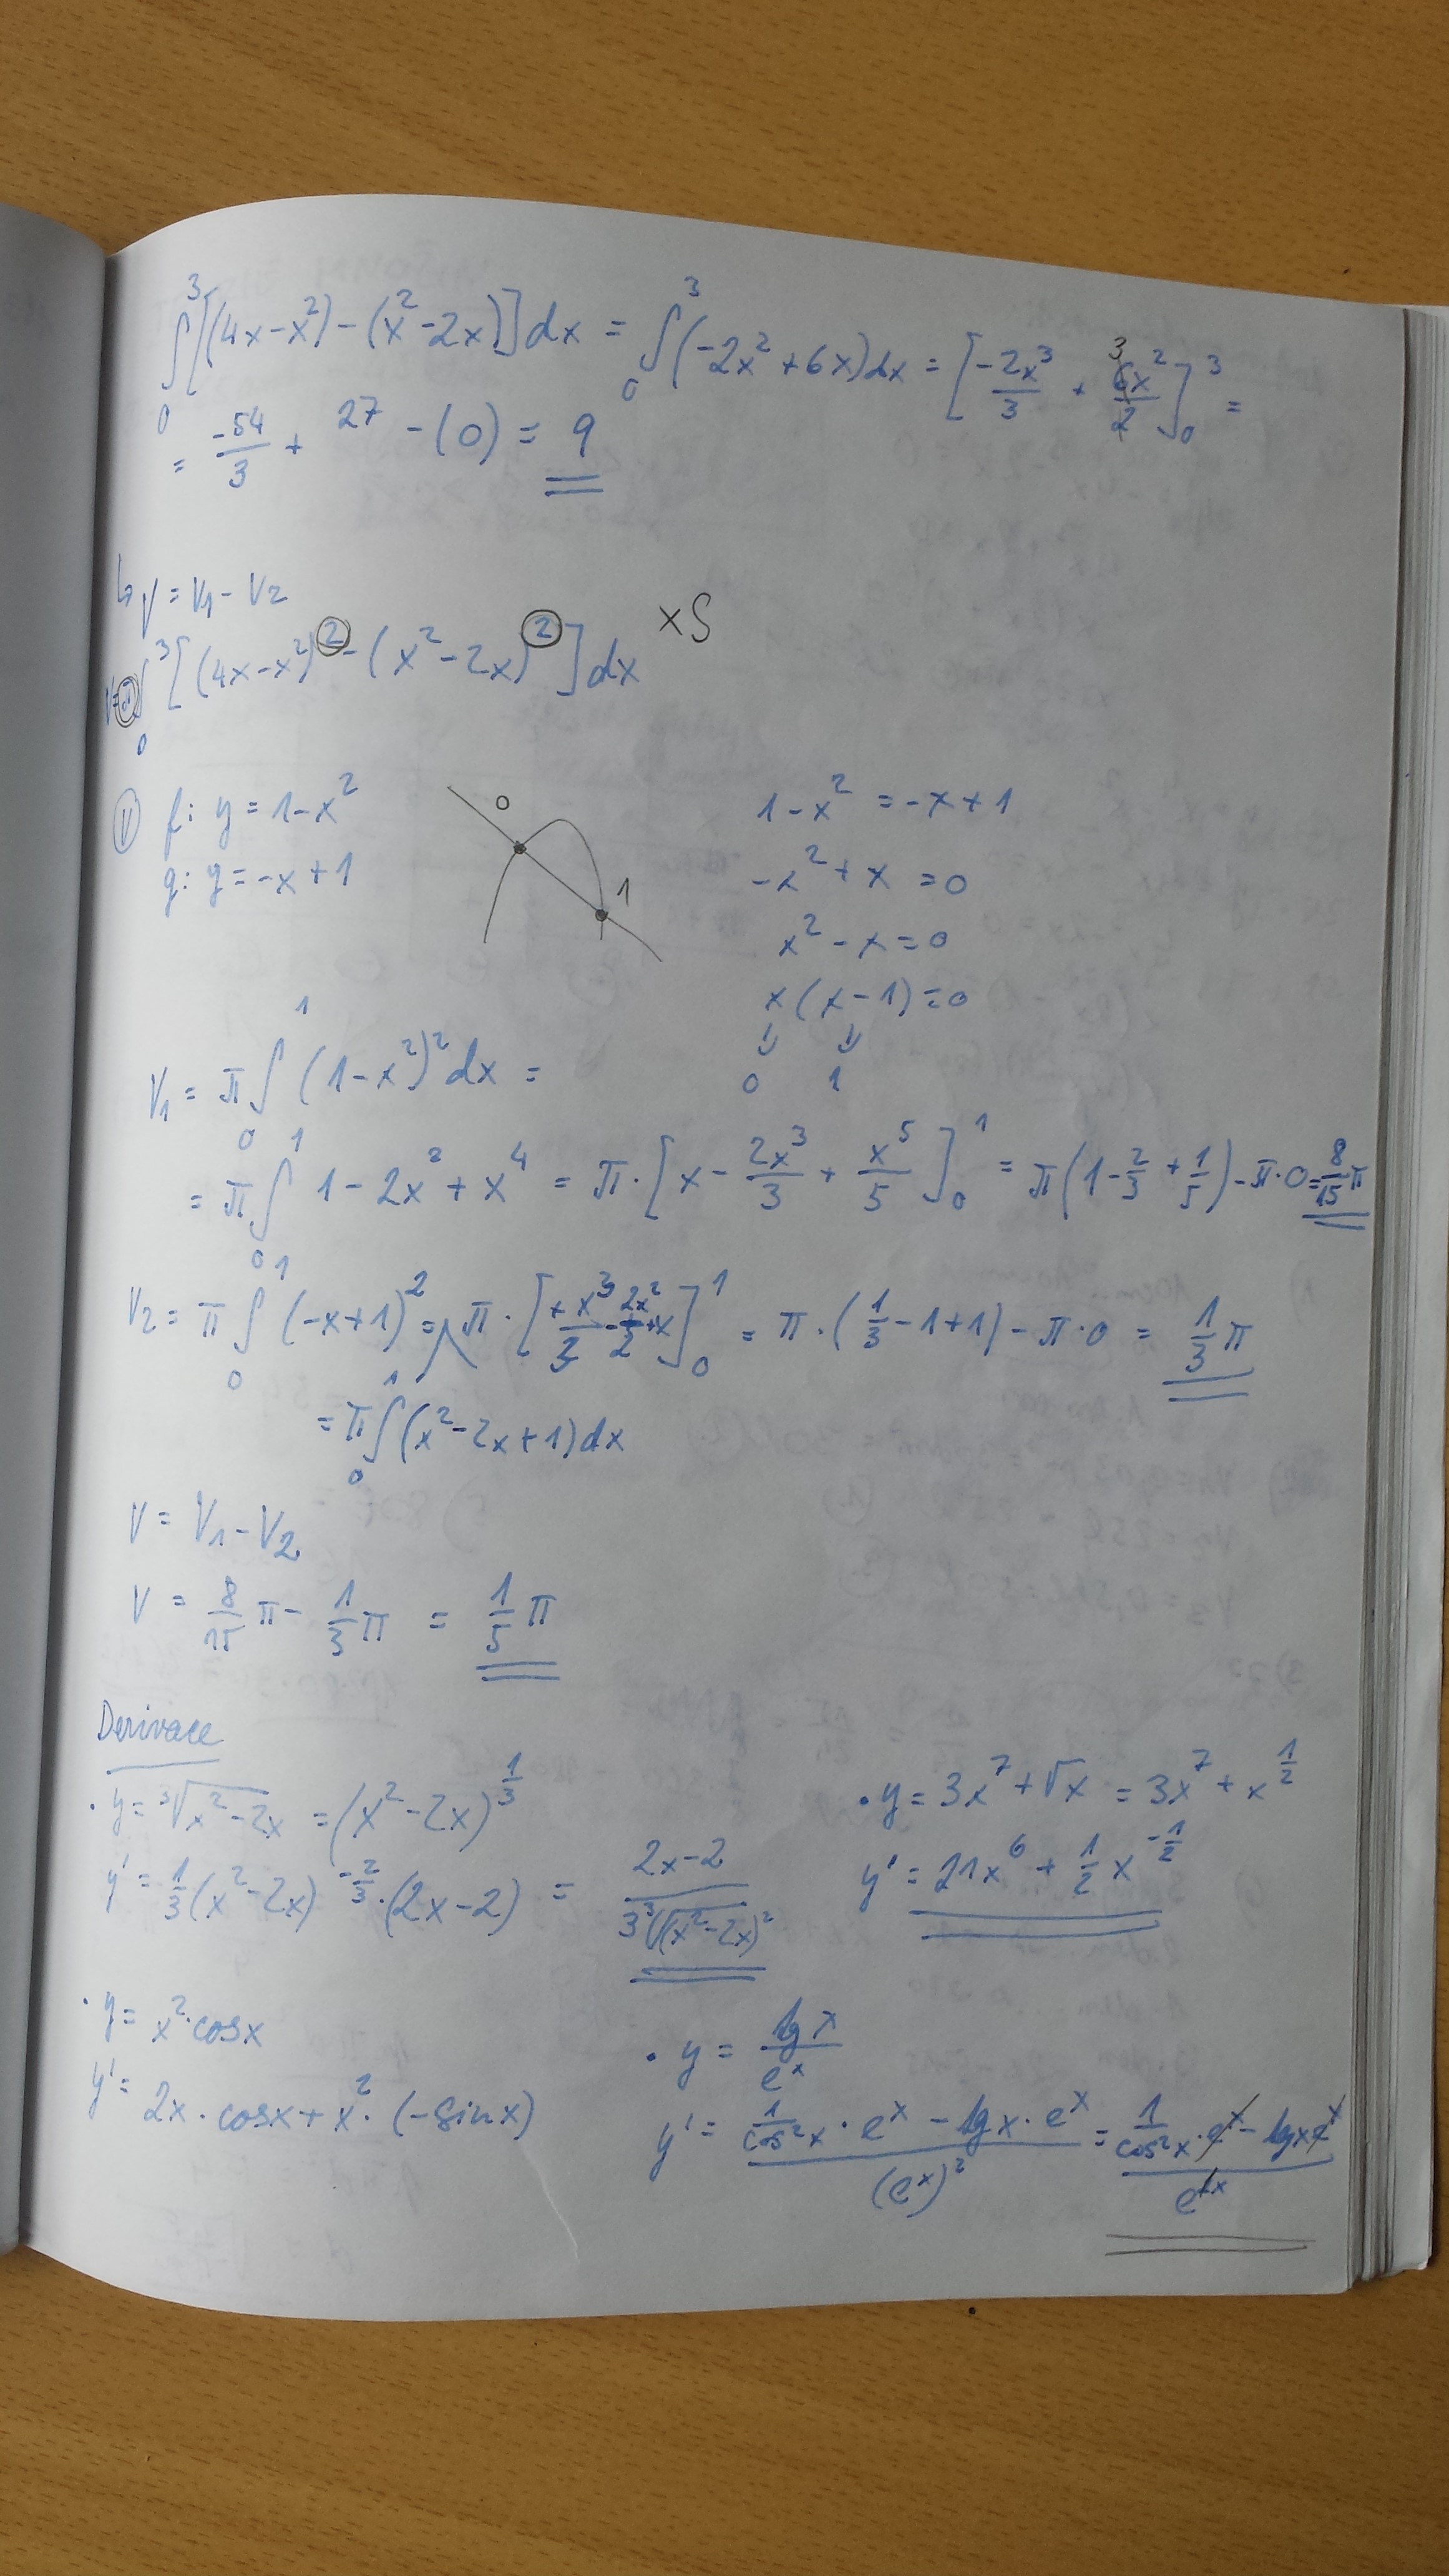 ∫₀³[(4x-x²)-(x²-2x)]dx = ∫₀³(-2x²+6x)dx = [-2x³/3 + 6x²/2]₀³ =
= -54/3 + 27 - (0) = 9
↳ V = V₁ - V₂
V=π∫₀³[(4x-x²)² - (x²-2x)²]dx ×S
Ⓥ f: y = 1-x² 0 1-x² = -x+1
g: y = -x+1 1 -x²+x = 0
x²-x=0
x(x-1)=0
0 1
V₁ = π∫₀¹(1-x²)²dx =
= π∫₀¹ 1-2x²+x⁴ = π·[x - 2x³/3 + x⁵/5]₀¹ = π(1-2/3+1/5)-π·0=8/15π
V₂ = π∫₀¹(-x+1)² = π·[+x³/3 - 2x²/2 + x]₀¹ = π·(1/3-1+1)-π·0 = 1/3π
= π∫₀¹(x²-2x+1)dx
V = V₁-V₂
V = 8/15π - 1/3π = 1/5π
Derivace
· y = ³√x²-2x = (x²-2x)^1/3 · y = 3x⁷+√x = 3x⁷+x^1/2
y' = 1/3(x²-2x)^-2/3·(2x-2) = 2x-2/3³√(x²-2x)² y' = 21x⁶ + 1/2x^-1/2
· y = x²·cosx · y = tgx/eˣ
y' = 2x·cosx+x²·(-sinx) y' = 1/cos²x·eˣ - tgx·eˣ/(eˣ)² = 1/cos²x·eˣ - tgxeˣ/e²ˣ